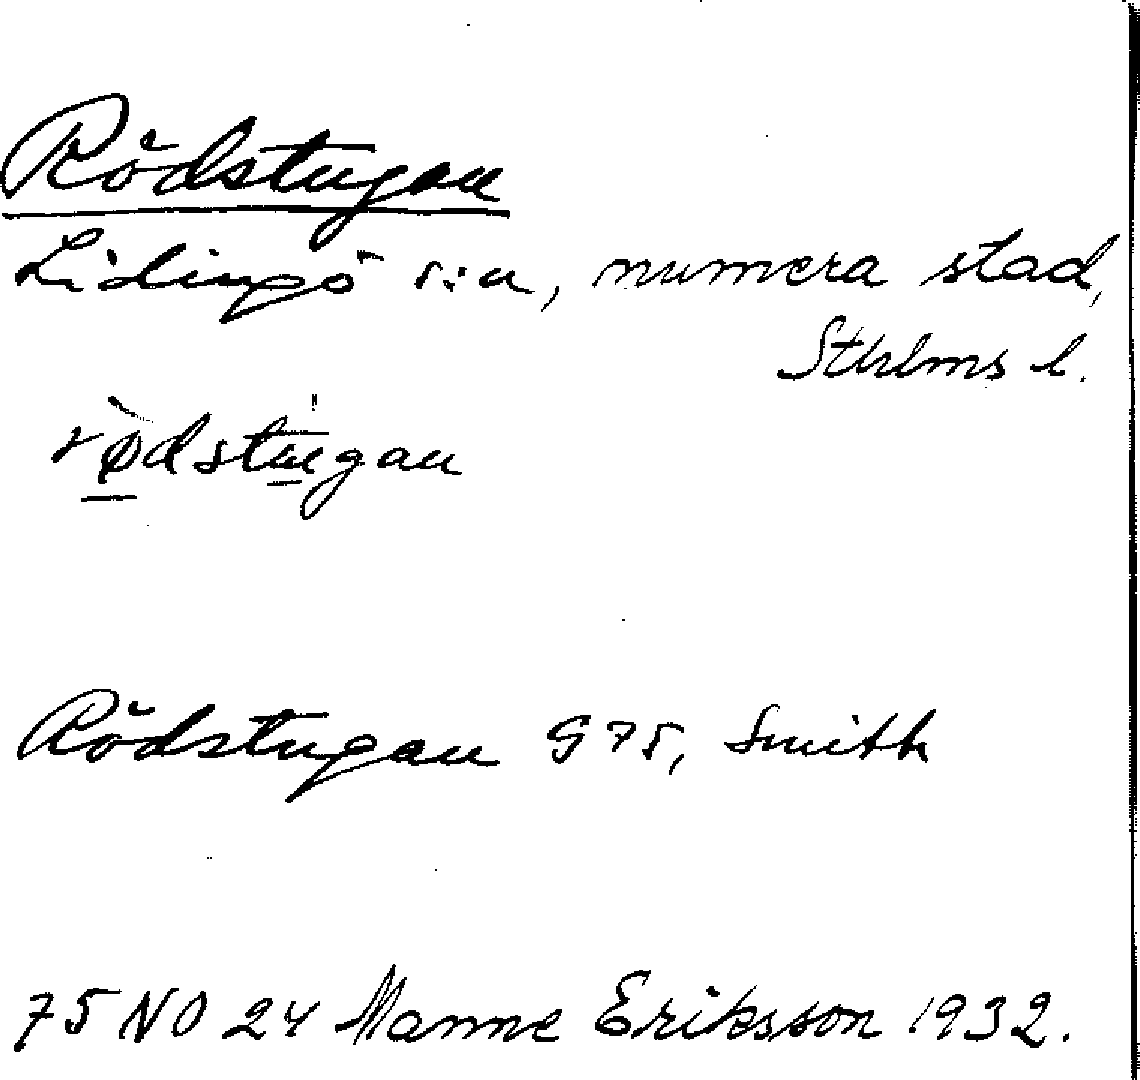 Rödstugan
Lidingö s:n, numera stad,
Sthlms l.
rødstugan
Rödstugan G 75, Smith
75 NO 24 Manne Eriksson 1932.